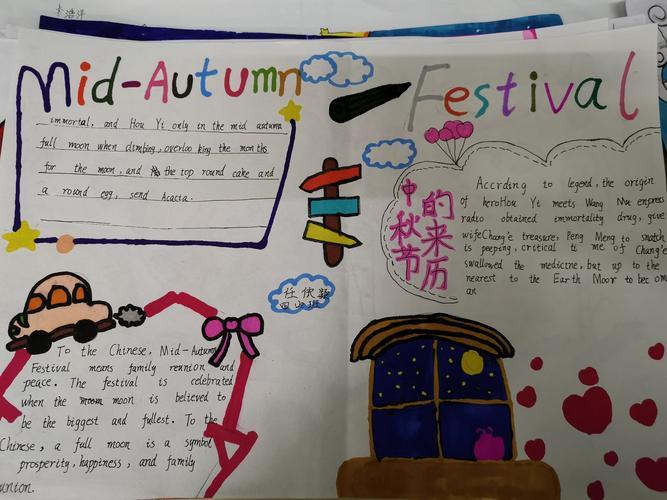 Mid-Autumn Festival
immortal, and Hou Yi only in the mid autumn
full moon when climbing, overloo king the months
for the moon, and the top round cake and
a round egg, send Acacia.
中秋节的来历
Accrding to legend, the origin
of heroHou Yi meets Wang Mue enpress
radio obtained immortality drug, give
wifeChang'e treasure, Peng Meng to snatch
is peeping, critical ti me of Chang'e
swallowed the medicine, but up to the
nearest to the Earth Moor to bec om
an
To the Chinese, Mid-Autumn
Festival means family reunion and
peace. The festival is celebrated
when the moon is believed to
be the biggest and fullest. To the
Chinese, a full moon is a symbol
prosperity, happiness, and family
union.